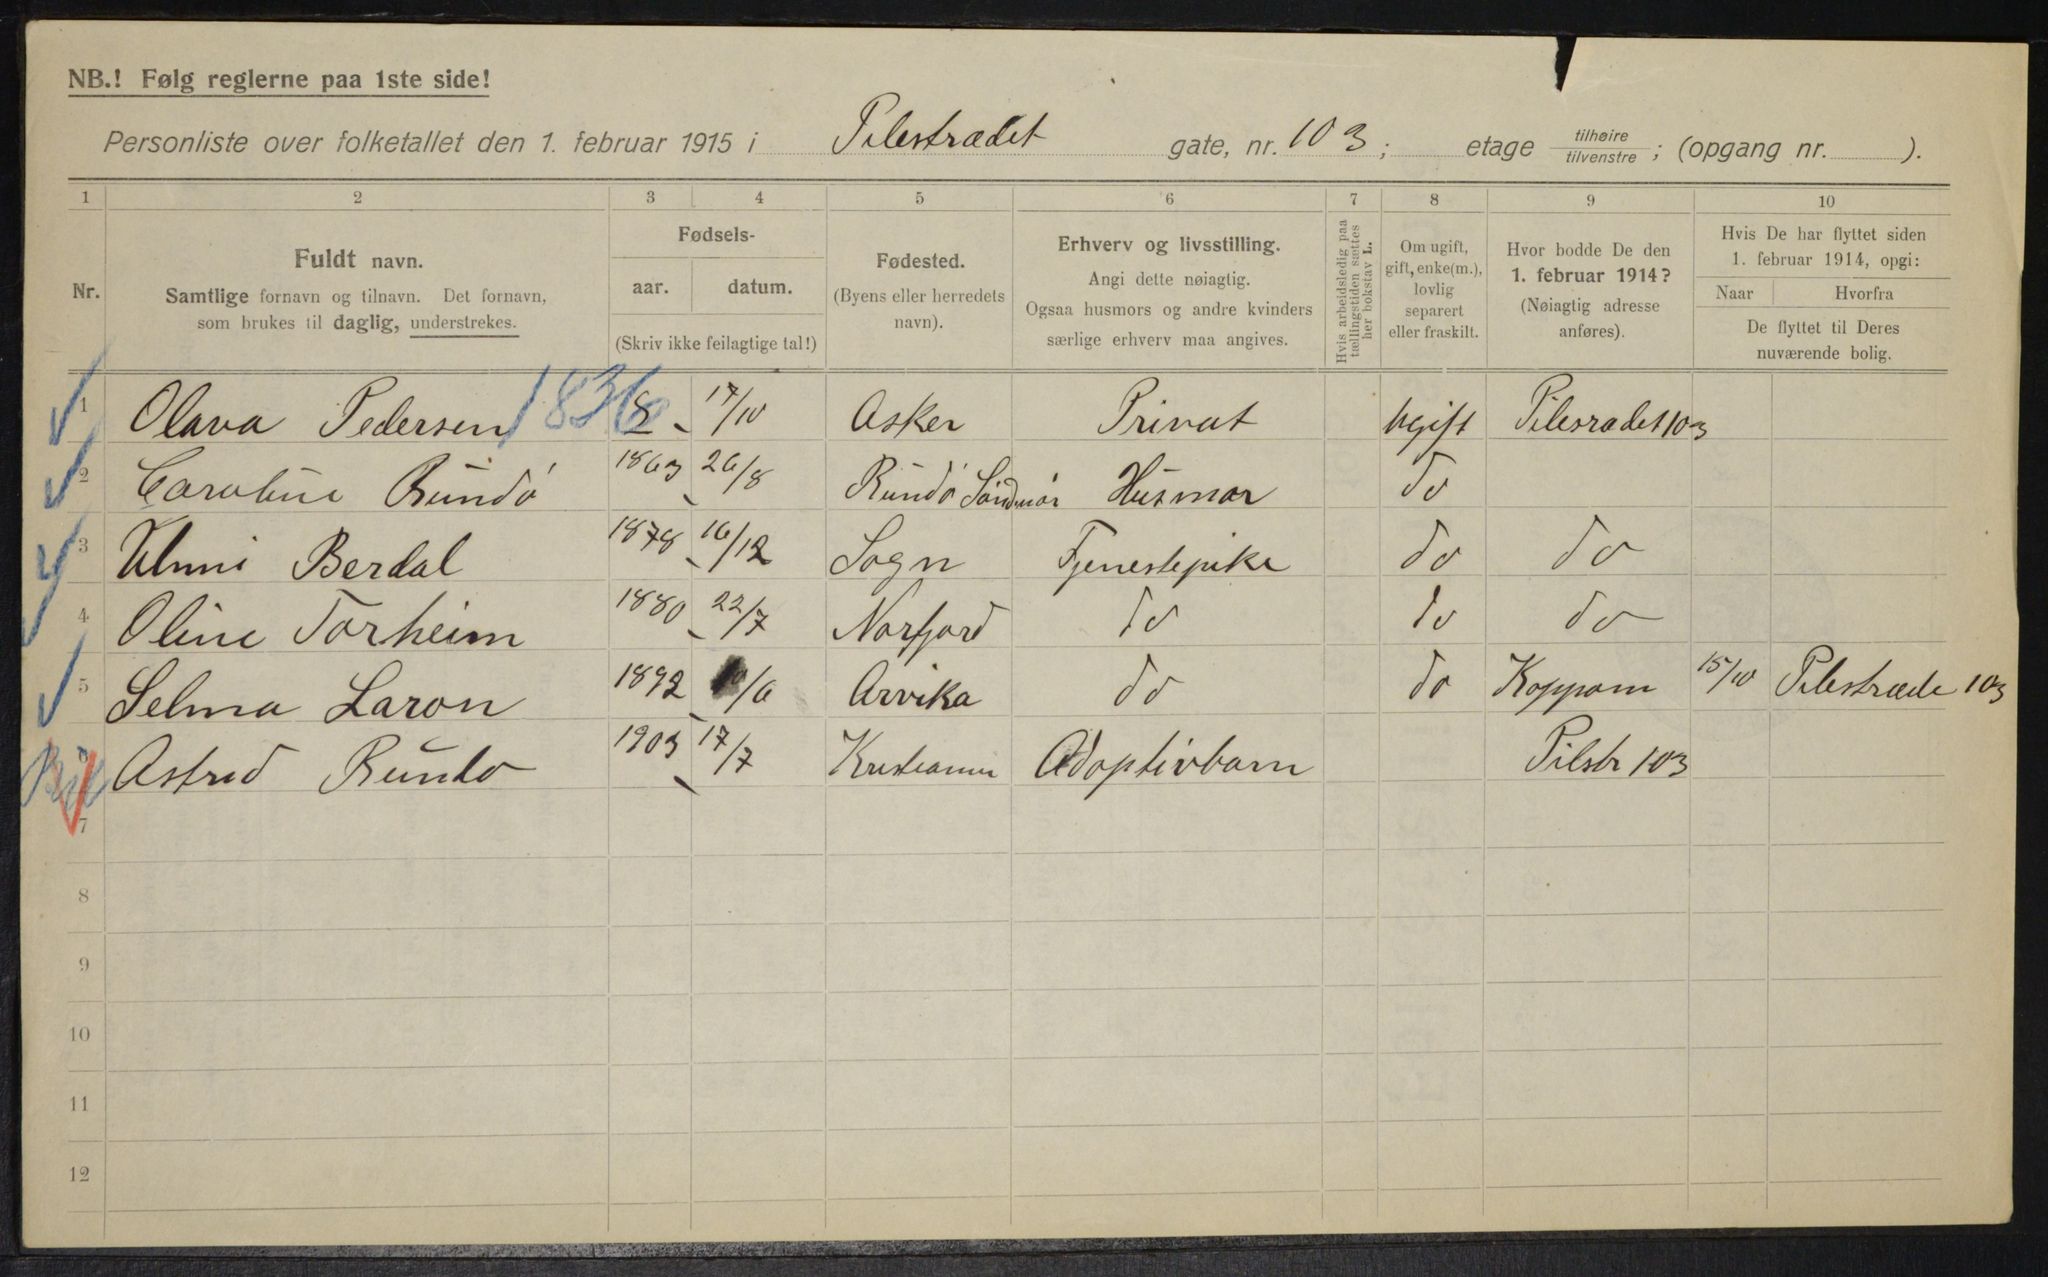 NB.! Følg reglerne paa 1ste side!
Personliste over folketallet den 1. februar 1915 i Pilestrædet gate, nr. 103; etage tilhøire/tilvenstre; (opgang nr. ).
1 2 3 4 5 6 7 8 9 10
Nr.
Fuldt navn.
Samtlige fornavn og tilnavn. Det fornavn,
som brukes til daglig, understrekes.
Fødsels-
aar. datum.
(Skriv ikke feilagtige tal!)
Fødested.
(Byens eller herredets
navn).
Erhverv og livsstilling.
Angi dette nøiagtig.
Ogsaa husmors og andre kvinders
særlige erhverv maa angives.
Hvis arbeidsledig paa
tællingstiden sættes
her bokstav L.
Om ugift,
gift, enke(m.),
lovlig
separert
eller fraskilt.
Hvor bodde De den
1. februar 1914?
(Nøiagtig adresse
anføres).
Hvis De har flyttet siden
1. februar 1914, opgi:
Naar Hvorfra
De flyttet til Deres
nuværende bolig.
1 Olava Pedersen 1836 17/10 Asker Privat Ugift Pilesradet 103
2 Caroline Rundö 1863 26/8 Rundö Söndmör Husmor do
3 Berdal 1878 16/12 Sogn Tjenestepike do do
4 Oline Torheim 1880 22/7 Norfjord do do do
5 Selma Laron 1892 /6 Arvika do do Koppom 15/10 Pilestræde 103
6 Astrid Rundo 1903 17/7 Kristiania Adoptivbarn Pilstr 103
7
8
9
10
11
12